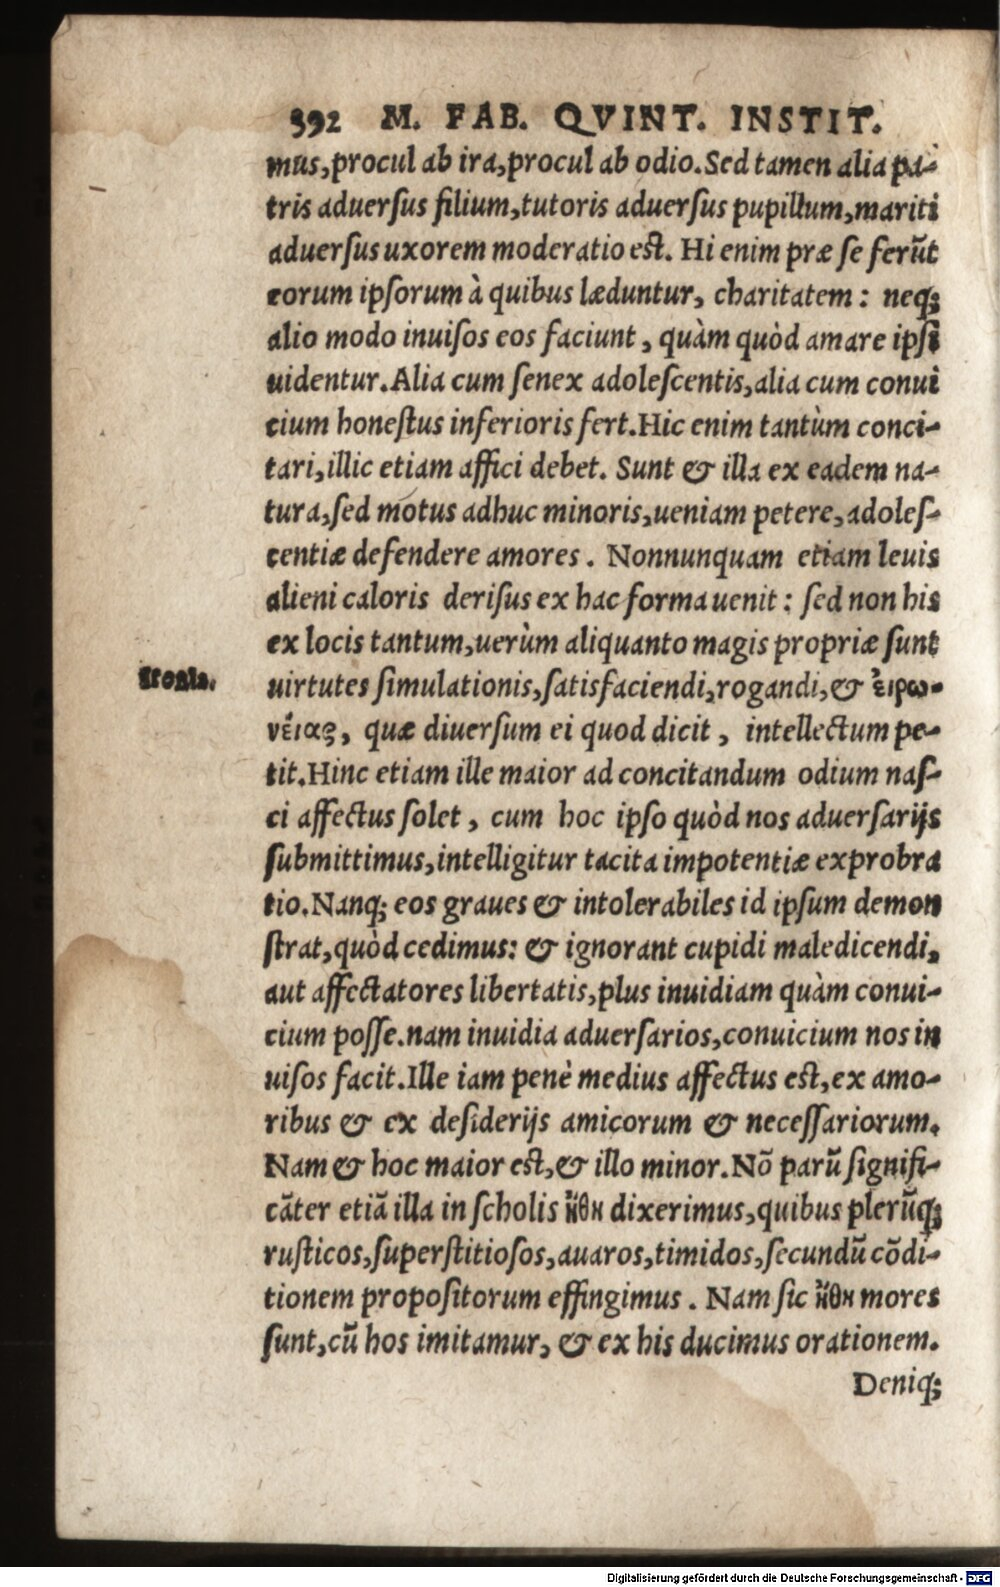 392 M. FAB. QVINT. INSTIT.
mus,procul ab ira,procul ab odio.Sed tamen alia pa-
tris aduersus filium,tutoris aduersus pupillum,mariti
aduersus uxorem moderatio est. Hi enim præ se ferūt
eorum ipsorum à quibus læduntur, charitatem: neq;
alio modo inuisos eos faciunt, quàm quòd amare ipsi
uidentur.Alia cum senex adolescentis,alia cum conui
cium honestus inferioris fert.Hic enim tantùm conci-
tari,illic etiam affici debet. Sunt & illa ex eadem na-
tura,sed motus adhuc minoris,ueniam petere,adoles-
centiæ defendere amores. Nonnunquam etiam leuis
alieni caloris derisus ex hac forma uenit: sed non his
ex locis tantum,uerùm aliquanto magis propriæ sunt
Ironia.
uirtutes simulationis,satisfaciendi,rogandi,& εἰρω-
νείας, quæ diuersum ei quod dicit, intellectum pe-
tit.Hinc etiam ille maior ad concitandum odium nas-
ci affectus solet, cum hoc ipso quòd nos aduersarijs
submittimus,intelligitur tacita impotentiæ exprobra
tio.Nanq; eos graues & intolerabiles id ipsum demon
strat,quòd cedimus: & ignorant cupidi maledicendi,
aut affectatores libertatis,plus inuidiam quàm conui-
cium posse.nam inuidia aduersarios,conuicium nos in
uisos facit.Ille iam penè medius affectus est,ex amo-
ribus & ex desiderijs amicorum & necessariorum.
Nam & hoc maior est,& illo minor.Nō parū signifi-
cāter etiā illa in scholis ἤθη dixerimus,quibus plerūq;
rusticos,superstitiosos,auaros,timidos,secundū cōdi-
tionem propositorum effingimus. Nam sic ἤθη mores
sunt,cū hos imitamur, & ex his ducimus orationem.
Deniq;
Digitalisierung gefördert durch die Deutsche Forschungsgemeinschaft - DFG